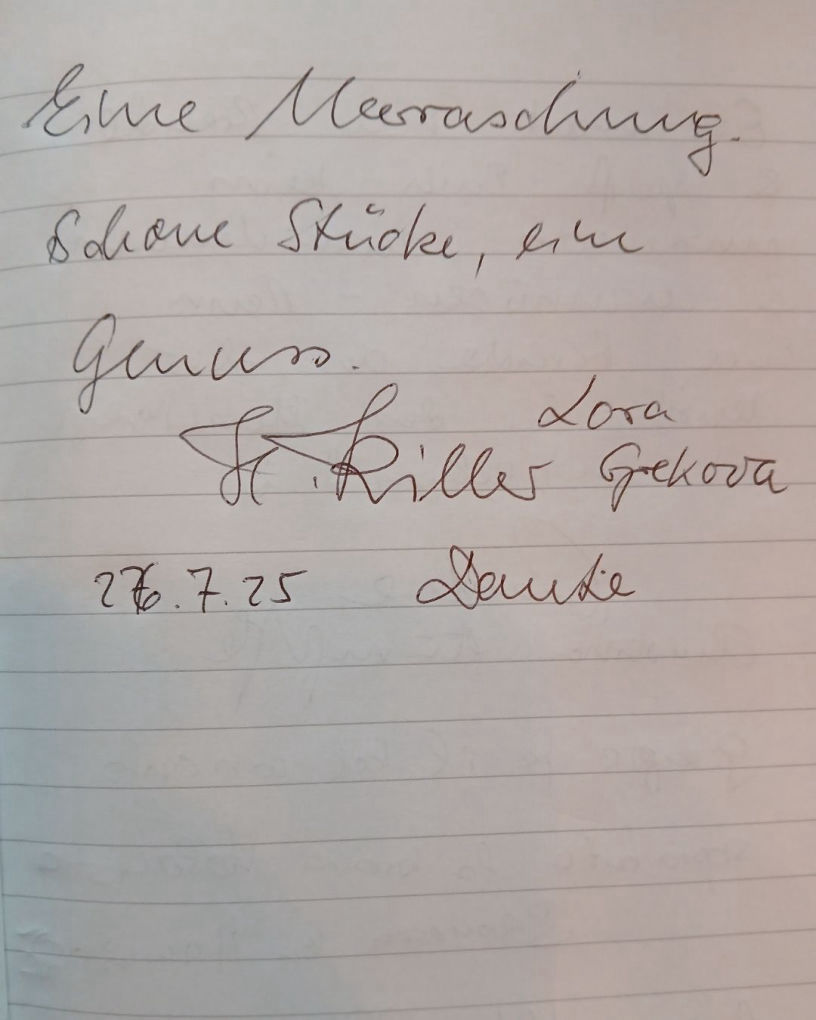 Eine Überraschung.
Schöne Stücke, ein
Genuss.
Lora
Killer Gekova
26.7.25 Danke